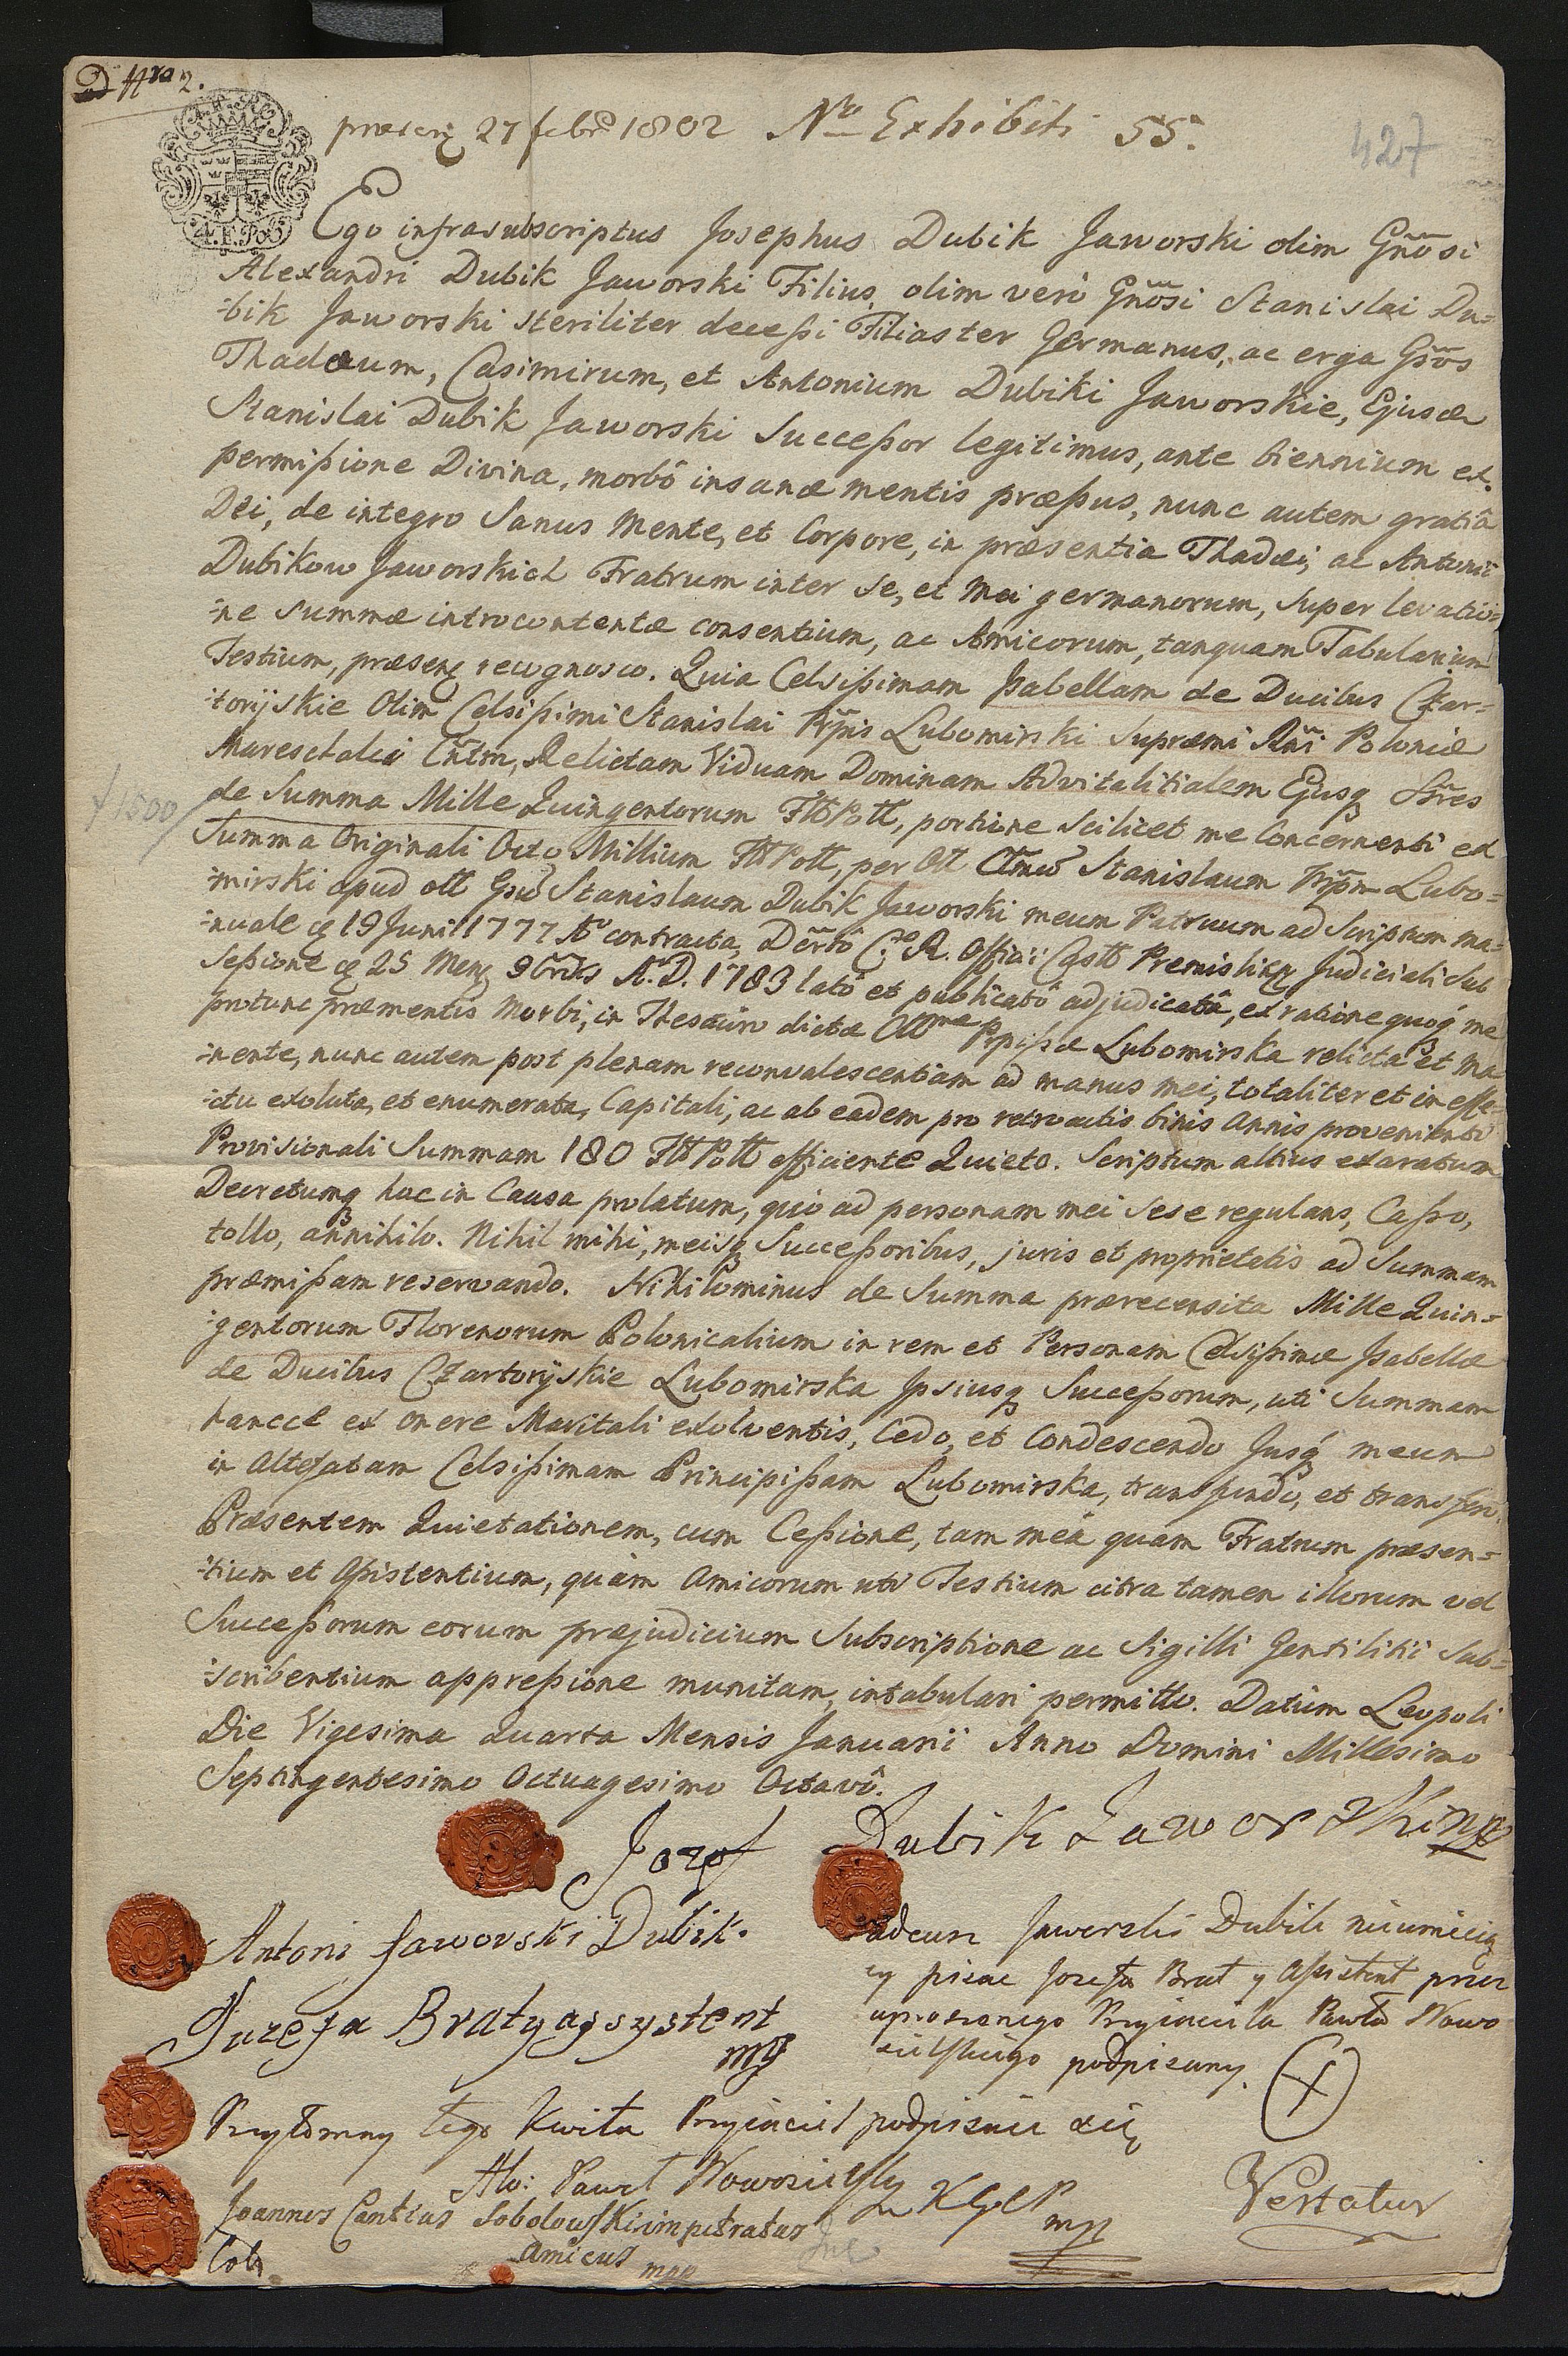 D Nro 2.
præsen 27 febr 1802 Nro Exhibiti 55.
427
4. F. Pol
Ego infrasubscriptus Josephus Dubik Jaworski olim Gnõsi
Alexandri Dubik Jaworski Filius, olim verò Gnõsi Stanislai Du=
bik Jaworski steriliter deceßi Filiaster Germanus, ac erga Gsõs
Thadæum, Casimirum, et Antonium Dubiki Jaworskie, Ejusd
Stanislai Dubik Jaworski Succeßor legitimus, ante biennium ex
permißione Divina, morbô insanæ mentis præßus, nunc autem gratiâ
Dei, de integro Sanus Mente, et Corpore, in præsentia Thadæi, ac Antonii
Dubikow Jaworskich Fratrum inter se, et Mei germanorum, super levatio=
ne summæ introcontentæ consentium, ac Amicorum, tanquam Tabularium
Testium, præsenq recognosco. Quia Celsißimam Isabellam de Ducibus Czar=
toryskie Olim Celsißimi Stanislai Prpis Lubomirski Supræmi Rni Poloniæ
Mareschalci Relictam Viduam Dominam Advitalitialem Ejusq Ssres
f 1500
de Summa Mille Quingentorum FlPoll, portione scilicet me Concernenti ex
Summa Originali Octo Millium FlPoll, per Oll Clmũ Stanislaum Prpm Lubo=
mirski apud oll Gsũ Stanislaum Dubik Jaworski meum Patruum ad Scriptum ma=
nuale q 19 Junii 1777 Ao contracta, Dcrtô C. R. Officii Castr Premislien Judiciali sub
Seßione q 25 Mens 9bris A.D. 1783 latô et publicatô adjudicatâ, ex ratione quoq me
protunc præmentis Morbi, in Thesauro dictæ Prpißæ Lubomirska relicta et ma
nente, nunc autem post plenam reconvalescentiam ad manus mei, totaliter et in effe=
ctu exoluta, et enumerata, Capitali, ac ab eadem pro retroactis binis annis provenienti
Provisionali Summam 180 FlPoll efficiente Quieto. Scriptum altius exaratum
Decretumq hac in Causa prolatum, quo ad personam mei sese regulans, Caßo,
tollo, annihilo. Nihil mihi, meisq Succeßoribus, juris et proprietatis ad Summam
præmißam reservando. Nihilominus de Summa prærecensita Mille Quin=
gentorum Florenorum Polonicalium in rem et Personam Celsißimæ Isabellæ
de Ducibus Czartoryskie Lubomirska Ipsiusq Succeßorum, uti Summam
hancce ex onere Maritali exolventis, Cedo, et Condescendo Jusq meum
in Altefatam Celsißimam Principißam Lubomirska, transfundo, et transfero.
Præsentem Quietationem, cum Ceßione, tam meâ quam Fratrum præsen=
tium et Aßistentium, quàm Amicorum uti Testium citra tamen illorum vel
Succeßorum eorum præjudicium Subscriptione ac Sigilli Gentilitii Sub=
scribentium appreßione munitam, intabulari permitto. Datum Leopoli
Die Vigesima Quarta Mensis Januarii Anno Domini Millesimo
Septingentesimo Octuagesimo Octavô.
Jozef Dubik Jaworski mp
Antoni Jaworski Dubik.
Juzefa Brat y assystent
mp
Tadeusz Jaworski Dubik nieumieią
cy pisac Jozefa Brat y Assistent przez
uproszonego Przyiaciela Pawła Nowo
sielskiego podpisany. (X)
Przytomny tego Kwitu Przyiaciel podpisuie się
Paweł Nowosielsky
mpp
Joannes Cantius Sobolewski impetratus
Amicus mpp
Vertatur